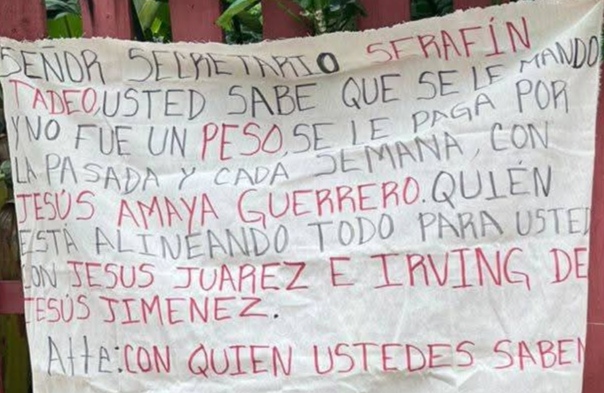 SEÑOR SECRETARIO SERAFÍN
TADEO, USTED SABE QUE SE LE MANDO
Y NO FUE UN PESO, SE LE PAGA POR
LA PASADA Y CADA SEMANA, CON
JESÚS AMAYA GUERRERO. QUIÉN
ESTÁ ALINEANDO TODO PARA USTED
CON JESUS JUAREZ E IRVING DE
JESÚS JIMENEZ.
Atte: CON QUIEN USTEDES SABEN